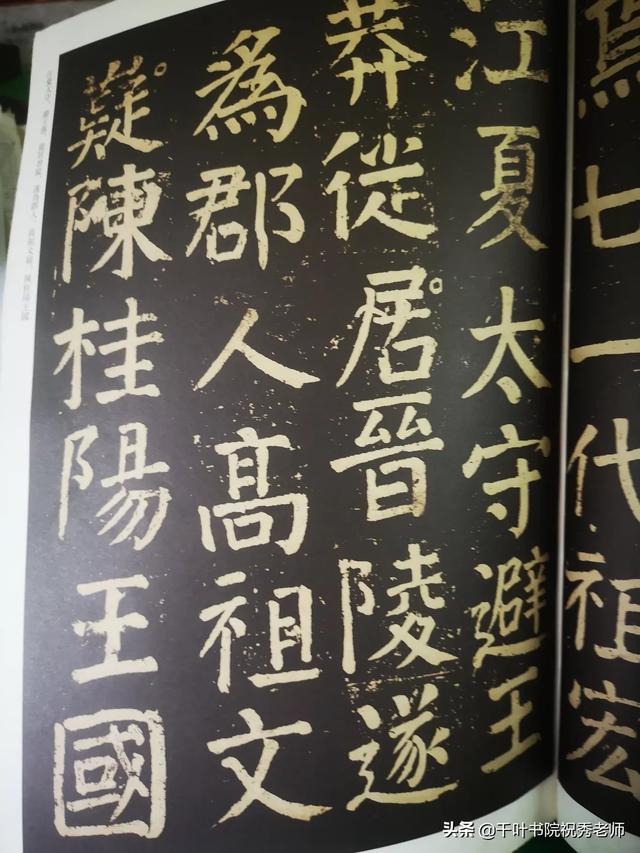 為七一代祖宏
江夏太守避王
莽徙居晉陵遂
為郡人髙祖文
嶷陳桂陽王國
头条 @千叶书院祝秀老师